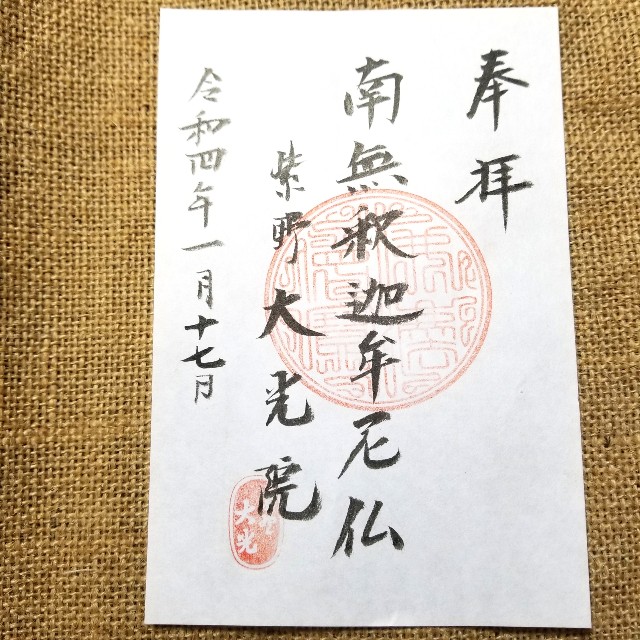 奉拝
南無釈迦牟尼仏
紫野大光院
令和四年一月十七月